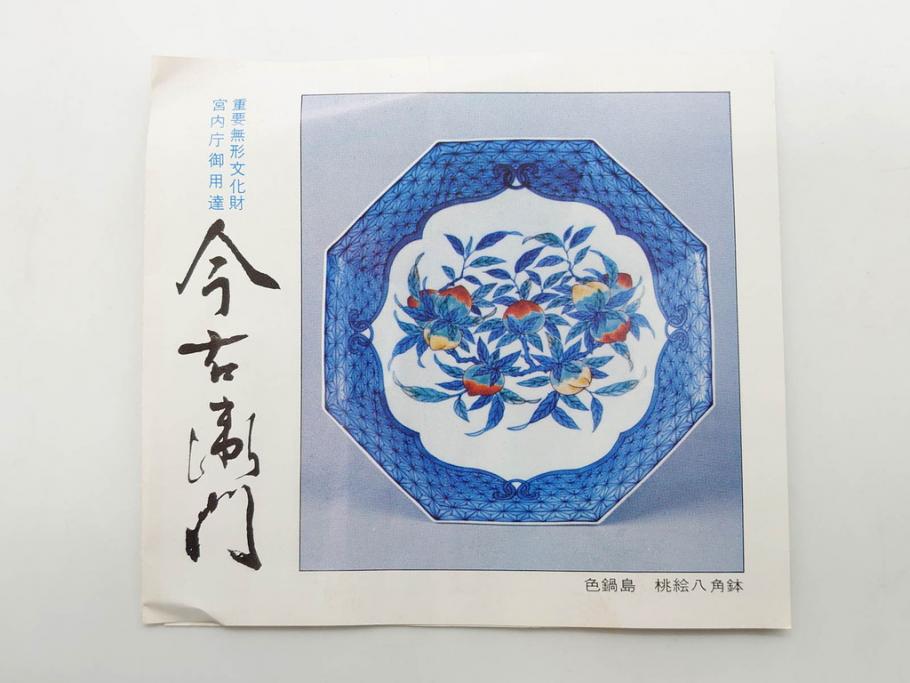 重要無形文化財
宮内庁御用達
今右衛門
色鍋島　桃絵八角鉢